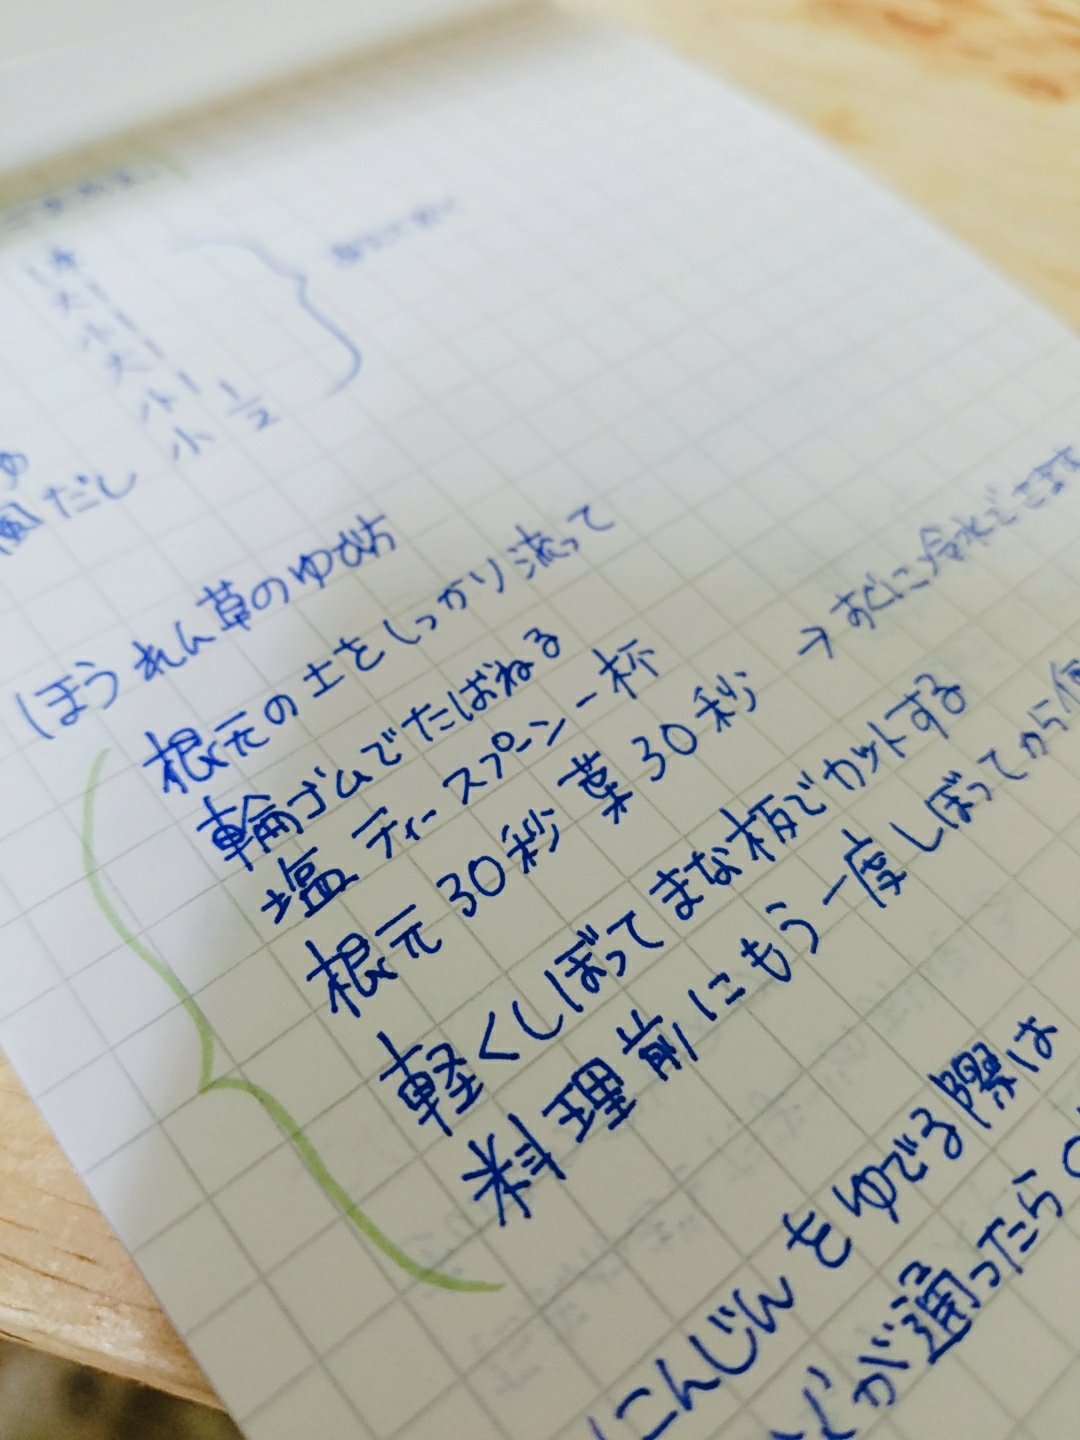 大 1
小 1
大 1
小 1
小 1/2
風だし
ほうれん草のゆがき方
根元の土をしっかり流って
輪ゴムでたばねる
塩 ティースプーン一杯
根元 30秒 葉 30秒 → すぐに冷水でさます
軽くしぼってまな板でカットする
料理前にもう一度しぼってから
にんじんをゆでる際は
が通ったら